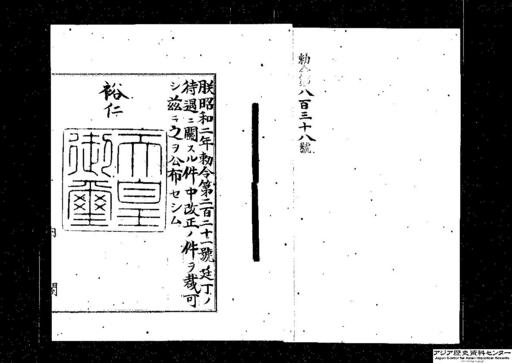 勅令第八百三十八號
朕昭和二年勅令第二百二十一號廷丁ノ
待遇ニ關スル件中改正ノ件ヲ裁可
シ茲ニ之ヲ公布セシム
裕仁
天皇
御璽
内閣
アジア歴史資料センター
Japan Center for Asian Historical Records